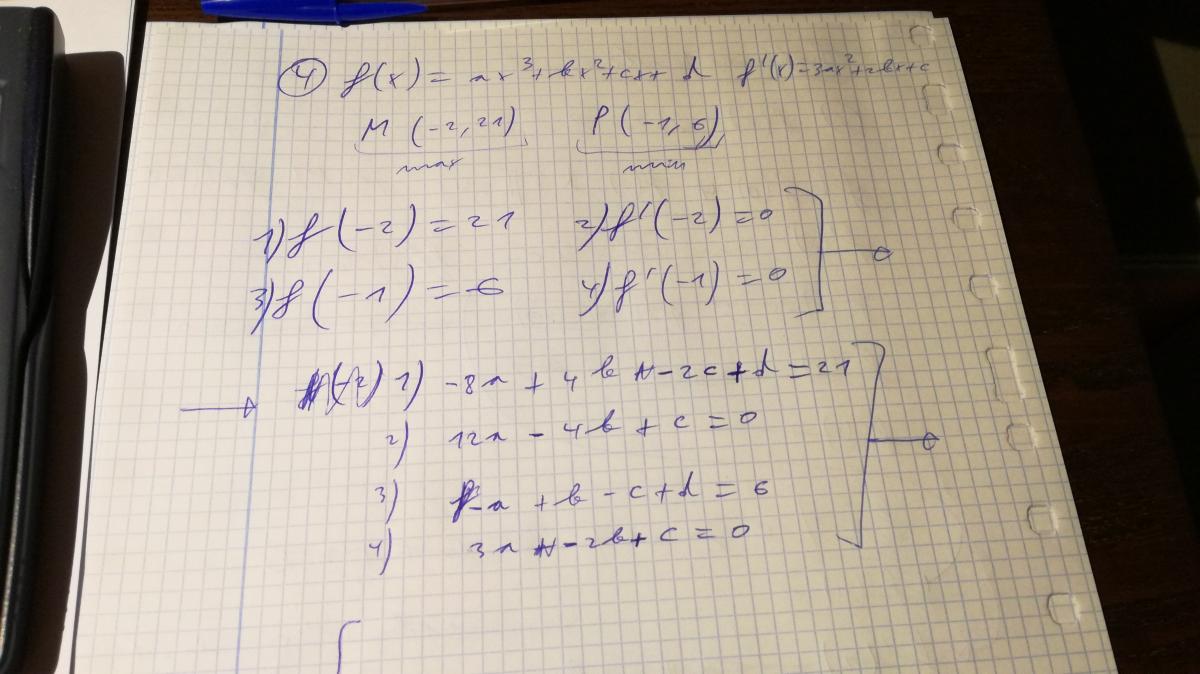 ④ f(x) = ax³+bx²+cx+d f'(x)=3ax²+2bx+c
M (-2,21) P(-1,6)
max min
1) f(-2) = 21 2) f'(-2) = 0
3) f(-1) = 6 4) f'(-1) = 0
1) -8a + 4b - 2c + d = 21
2) 12a - 4b + c = 0
3) -a + b - c + d = 6
4) 3a - 2b + c = 0